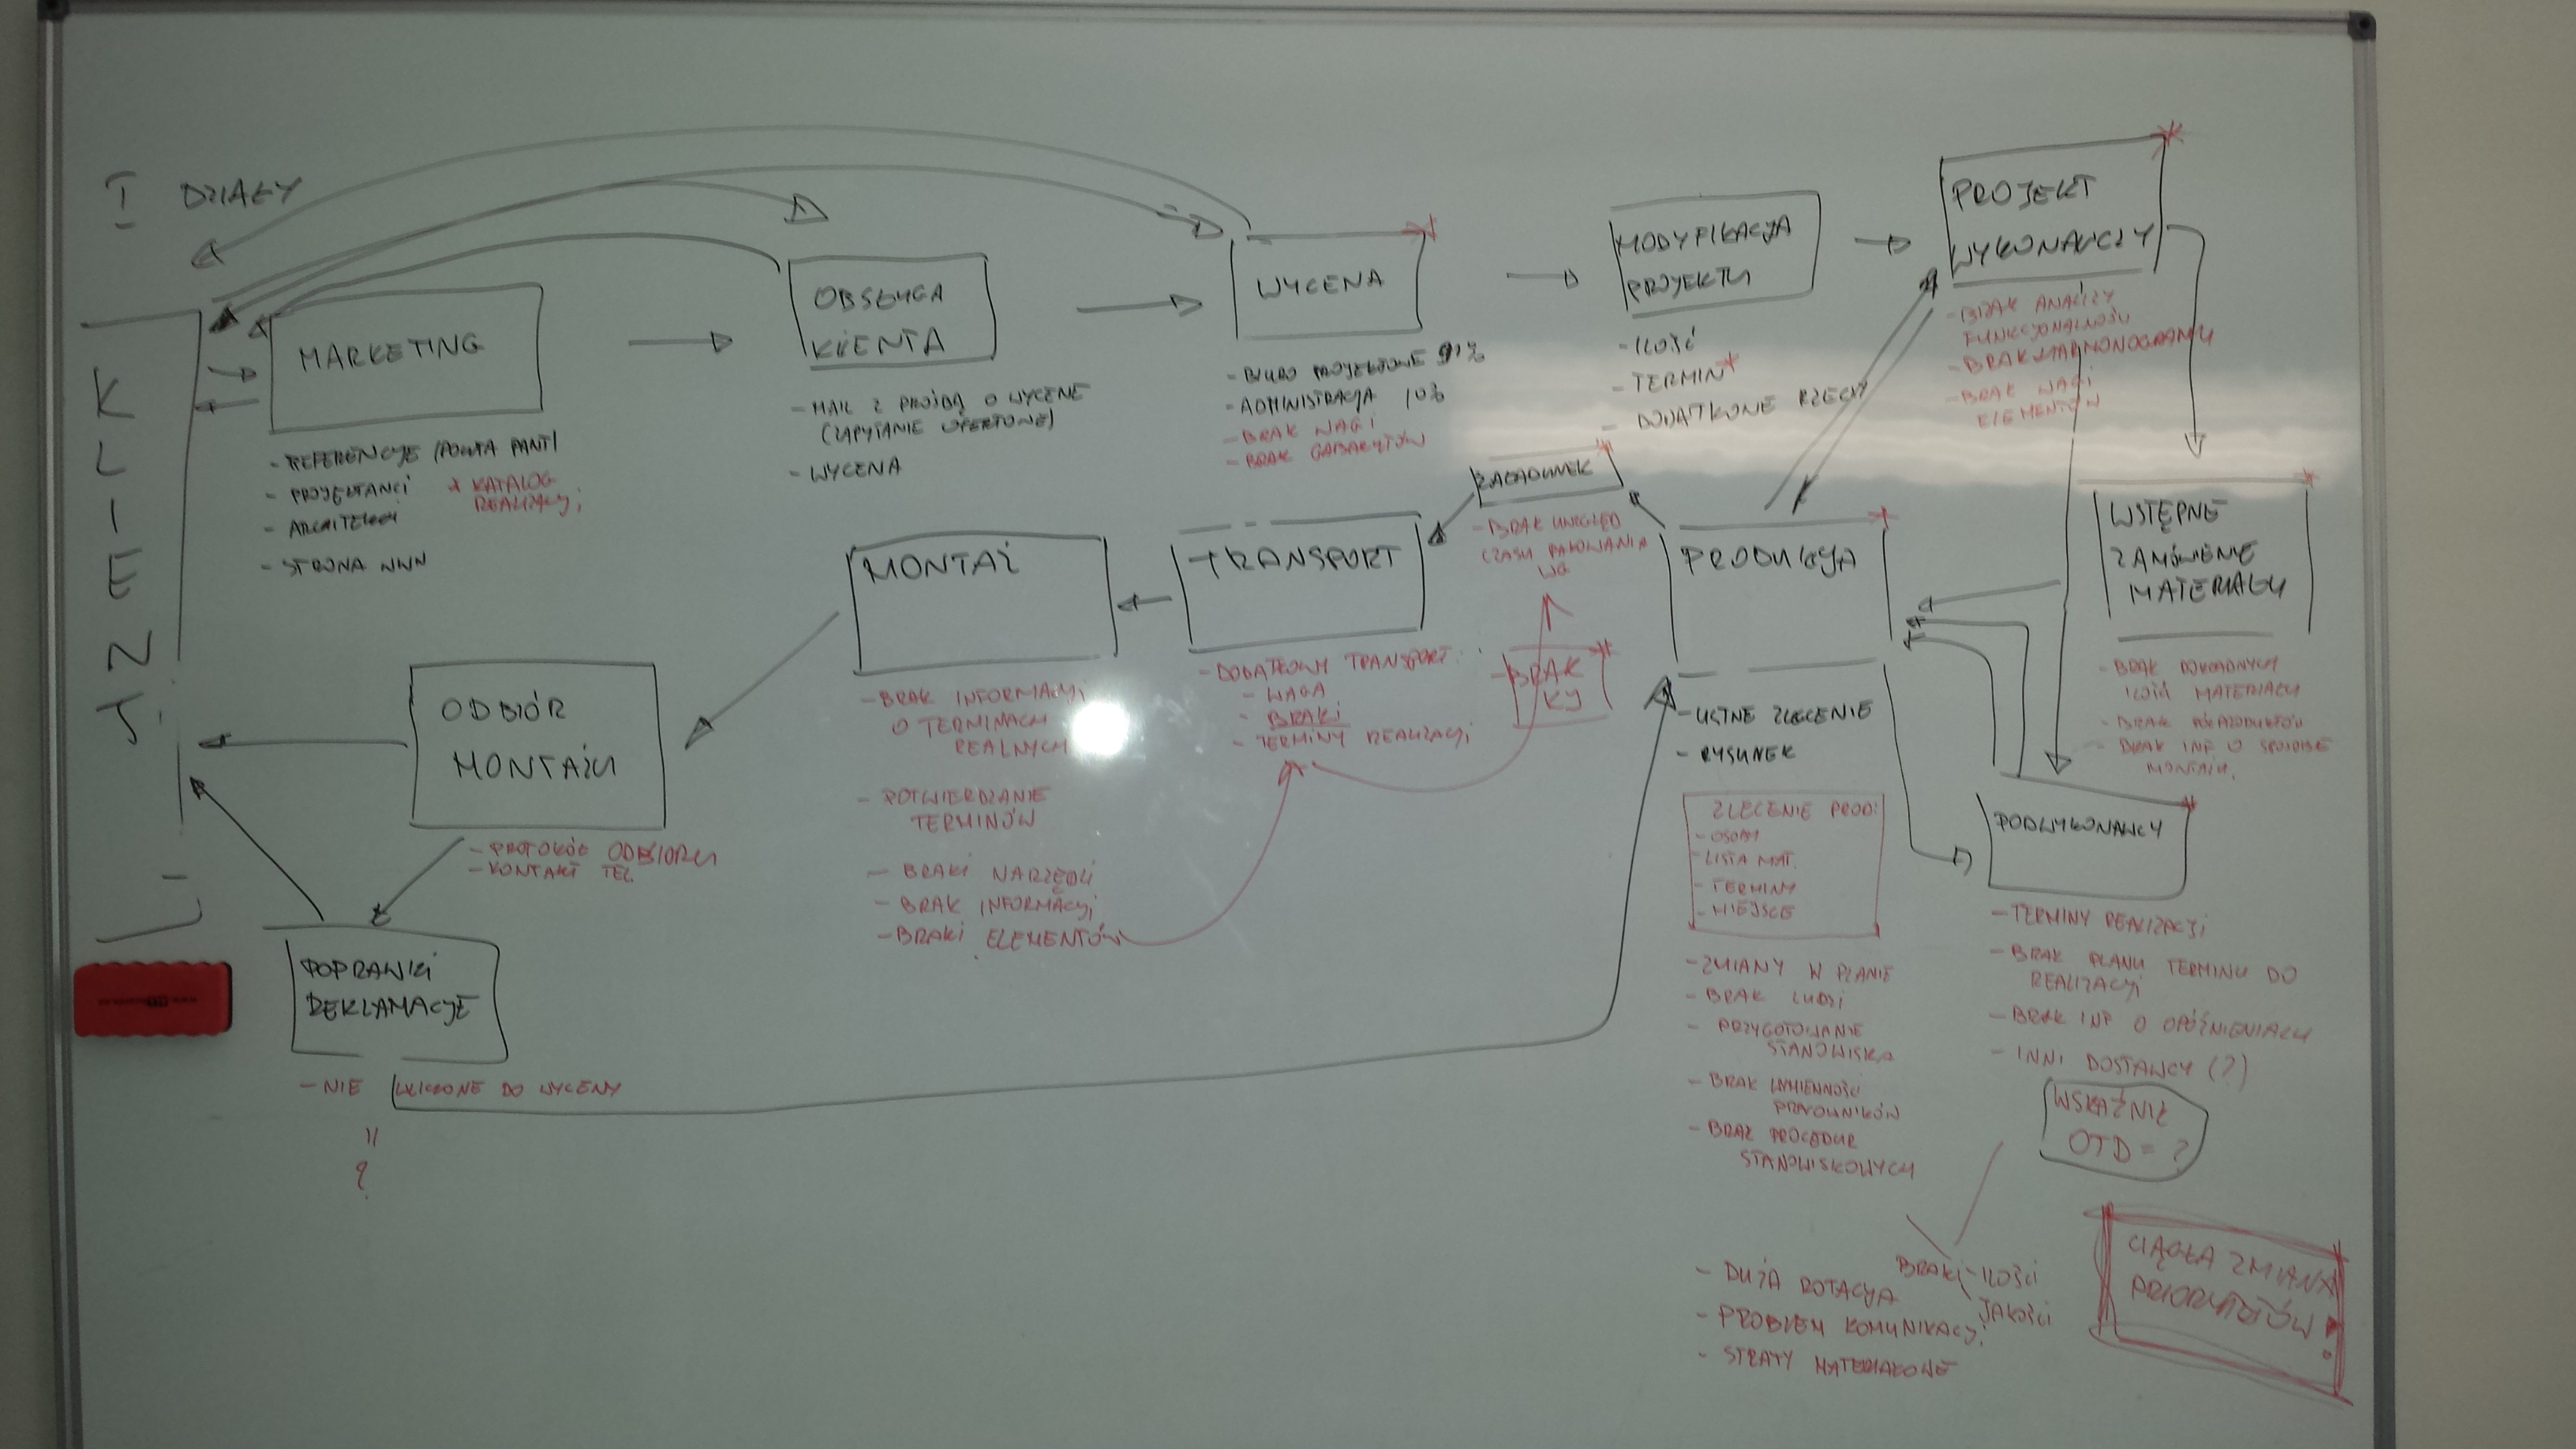 I DZIAŁY
KLIENT
MARKETING
- REFERENCJE
- PROJEKTANCI
+ KATALOG
REALIZACJI
- ARCHITEKCI
- STRONA WWW
OBSŁUGA
KLIENTA
- MAIL Z PROŚBĄ O WYCENĘ
(ZAPYTANIE OFERTOWE)
- WYCENA
WYCENA
- BIURO PROJEKTOWE
- ADMINISTRACJA 10%
- BRAK WAGI
- BRAK GABARYTÓW
MODYFIKACJA
PROJEKTU
- ILOŚĆ
- TERMIN*
- DODATKOWE RZECZY
PROJEKT
WYKONAWCZY
- BRAK ANALIZY
FUNKCJONALNOŚCI
- BRAK HARMONOGRAMU
- BRAK WAGI
ELEMENTÓW
WSTĘPNE
ZAMÓWIENIE
MATERIAŁU
- BRAK DOKŁADNYCH
ILOŚCI MATERIAŁU
- BRAK PÓŁPRODUKTÓW
- BRAK INF O SPOSOBIE
MONTAŻU.
ZAŁADUNEK
- BRAK UWZGLĘD
CZASU PAKOWANIA
WG
BRAK
KJ
PRODUKCJA
- USTNE ZLECENIE
- RYSUNEK
ZLECENIE PROD:
- OSOBY
- LISTA MAT.
- TERMINY
- MIEJSCE
- ZMIANY W PLANIE
- BRAK LUDZI
- PRZYGOTOWANIE
STANOWISKA
- BRAK WYMIENNOŚCI
PRACOWNIKÓW
- BRAK PROCEDUR
STANOWISKOWYCH
PODWYKONAWCY
- TERMINY REALIZACJI
- BRAK PLANU TERMINU DO
REALIZACJI
- BRAK INF O OPÓŹNIENIACH
- INNI DOSTAWCY (?)
WSKAŹNIK
OTD = ?
BRAKI - ILOŚCI
JAKOŚCI
- DUŻA ROTACJA
- PROBLEM KOMUNIKACJI
- STRATY MATERIAŁOWE
CIĄGŁA ZMIANA
PRIORYTETÓW !
TRANSPORT
- DODATKOWY TRANSPORT:
- WAGA
- BRAKI
- TERMINY REALIZACJI
MONTAŻ
- BRAK INFORMACJI
O TERMINACH
REALNYCH
- POTWIERDZANIE
TERMINÓW
- BRAKI NARZĘDZI
- BRAK INFORMACJI
- BRAKI ELEMENTÓW
ODBIÓR
MONTAŻU
- PROTOKÓŁ ODBIORU
- KONTAKT TEL
POPRAWKI
REKLAMACJE
- NIE WLICZONE DO WYCENY
"
?